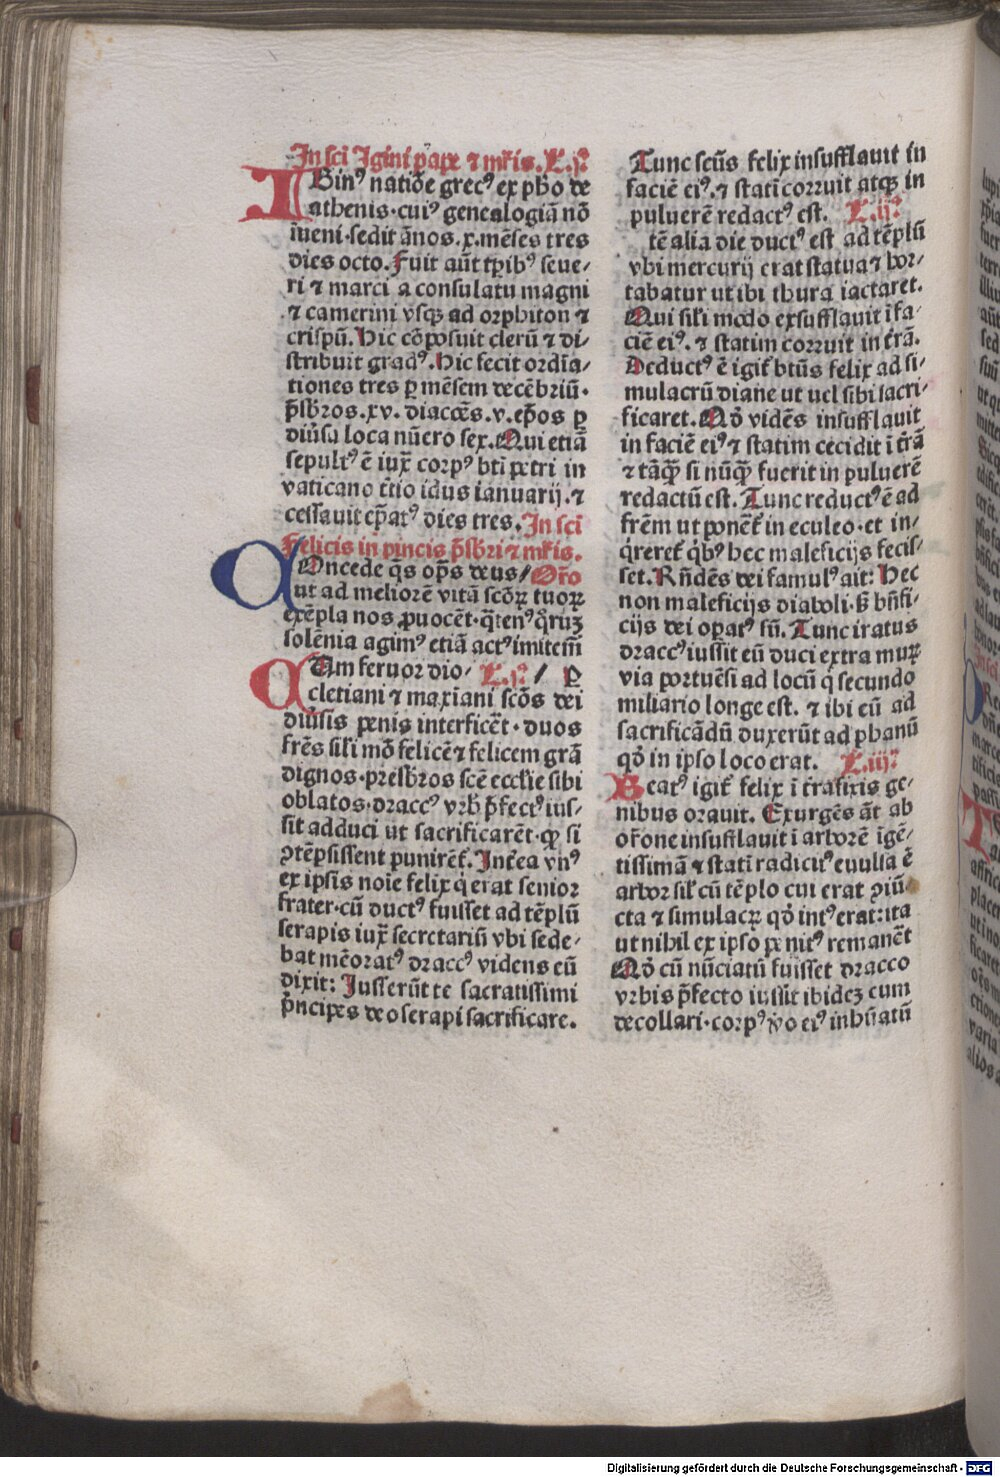 In sci Igini pape ⁊ mr̃is. L. j.ª
IBinꝰ natiõe grecꝰ ex ph̃o de
athenis·cuiꝰ genealogiã nõ
ĩueni·sedit ãnos.x.mẽses tres
dies octo. Fuit aũt tp̃ibꝰ seue⸗
ri ⁊ marci a consulatu magni
⁊ camerini vsqꝫ ad orphiton ⁊
crispũ. Hic cõposuit clerũ ⁊ di⸗
stribuit gradꝰ. Hic fecit ordĩa⸗
tiones tres ꝑ mẽsem decẽbriũ·
p̃sb̃ros.xv. diacoẽs.v.ep̃os ꝑ
diũsa loca nũero sex. Qui etiã
sepultꝰ ẽ iux̃ corpꝰ bti petri in
vaticano t̃tio idus ianuarij.⁊
cessauit ep̃atꝰ dies tres. In sci
Felicis in pincis p̃sb̃ri ⁊ mr̃is.
COncede q̃s op̃s deus/ Or̃o
ut ad meliorẽ vitã scõꝝ tuoꝝ
exẽpla nos ꝓuocẽt·q̃tenꝰ q̃rũꝫ
solẽnia agimꝰ etiã actꝰ imitem̃
CUm feruor dio⸗ L. j.ª / P
cletiani ⁊ maxiani scõs dei
diũsis penis interficẽt · duos
frẽs sil̃i mõ felicẽ ⁊ felicem grã
dignos·presb̃ros scẽ eccl̃ie sibi
oblatos·draccꝰ vrb̃ p̃fectꝰ ius⸗
sit adduci ut sacrificarẽt·ꝙ si
ꝯtẽpsissent punirẽt̃. Int̃ea vnꝰ
ex ipsis noie felix q̇ erat senior
frater·cũ ductꝰ fuisset ad tẽplũ
serapis iux̃ secretariũ vbi sede⸗
bat mẽoratꝰ draccꝰ videns eũ
dixit: Iusserũt te sacratissimi
p̃ncipes deo serapi sacrificare.
Tunc scũs felix insufflauit in
faciẽ eiꝰ.⁊ stati corruit atqꝫ in
puluerẽ redactꝰ est. L. ij.ª
tẽ alia die ductꝰ est ad tẽplũ
vbi mercurij erat statua ⁊ hor⸗
tabatur ut ibi thura iactaret.
Qui sil̃i modo exsufflauit ĩ fa⸗
ciẽ eiꝰ. ⁊ statim corruit in t̃rã.
Deductꝰ ẽ igit̃ btũs felix ad si⸗
mulacrũ diane ut uel sibi sacri⸗
ficaret. Qõ vidẽs insufflauit
in faciẽ eiꝰ ⁊ statim cecidit ĩ t̃rã
⁊ tãq̃ꝫ si nũq̃ꝫ fuerit in puluerẽ
redactũ est. Tunc reductꝰ ẽ ad
frẽm ut ponẽt̃ in eculeo·et in⸗
q̇reret̃ q̇bꝰ hec maleficijs fecis⸗
set. Rñdẽs dei famulꝰ ait: Hec
non maleficijs diaboli·s̃ bñfi⸗
cijs dei opatꝰ sũ. Tunc iratus
draccꝰ iussit eũ duci extra muꝝ
via portuẽsi ad locũ q̇ secundo
miliario longe est. ⁊ ibi eũ ad
sacrificãdũ duxerũt ad phanũ
qõ in ipso loco erat. L. iij.ª
Beatꝰ igit̃ felix ĩ t̃ra fixis ge⸗
nibus orauit. Exurgẽs ãt ab
or̃one insufflauit ĩ arborẽ ĩgẽ⸗
tissimã ⁊ stati radicitꝰ euulsa ẽ
arbor sil̃ cũ tẽplo cui erat ꝯiũ⸗
cta ⁊ simulacꝝ qõ intꝰ erat:ita
ut nihil ex ipso penitꝰ remanẽt
Qõ cũ nũciatũ fuisset dracco
vrbis p̃fecto iussit ibidẽꝫ eum
decollari·corpꝰ ṽo eiꝰ inhũatũ
Digitalisierung gefördert durch die Deutsche Forschungsgemeinschaft - DFG